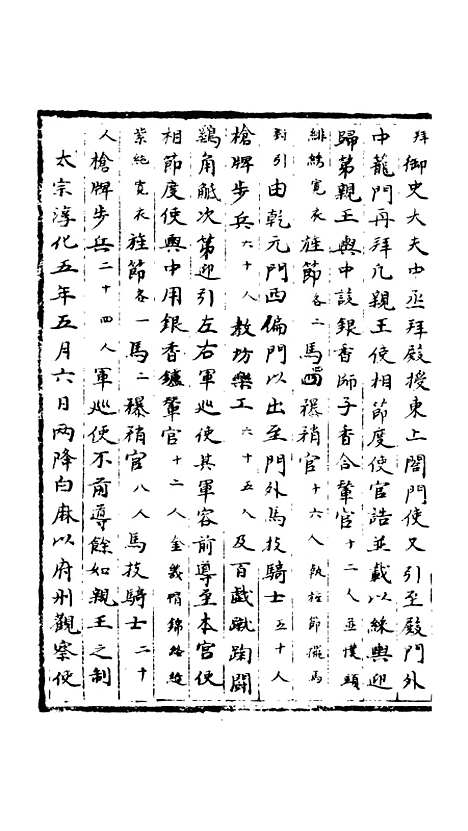 拜御史大夫中丞拜殿授東上閤門使又引至殿門外
中籠門再拜凡親王使相節度使官誥並載以綵輿迎
歸第親王輿中設銀香師子香合輦官十二人並幞頭
緋繡寛衣旌節各二馬四𣝣矟官十六人執旌節擺馬
對引由乾元門西偏門以出至門外馬技騎士五十人
槍牌步兵六十人教坊樂工六十五人及百戲蹴踘鬪
鷄角觝次第迎引左右軍廵使具軍容前導至本官使
相節度使輿中用銀香爐輦官十二人金義帽錦絡縫
紫絁寛衣旌節各一馬二𣝣矟官八人馬技騎士二十
人槍牌步兵二十四人軍廵使不前導餘如親王之制
太宗淳化五年五月六日兩降白麻以府州觀察使